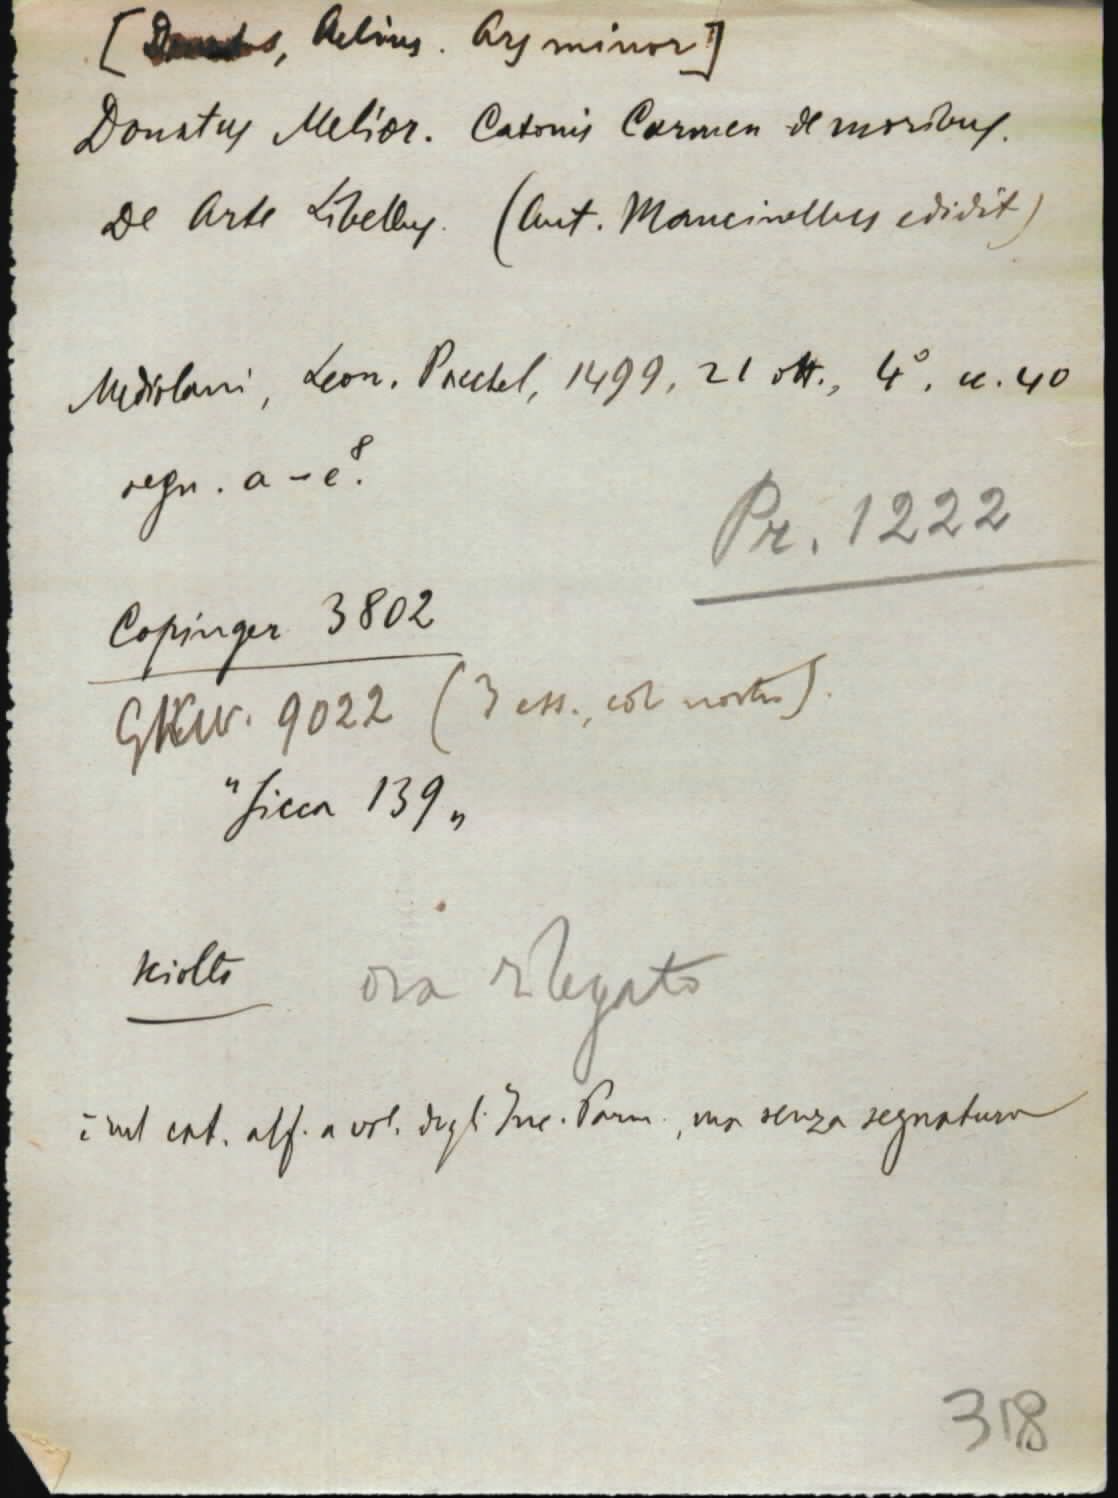 [Donatus, Aelius. Ars minor]
Donatus Melior. Catonis Carmen de moribus.
De Arte Libellus. (Ant. Mancinellus edidit)
Mediolani, Leon. Pachel, 1499, 21 ott., 4°. cc. 40
segn. a-e⁸.
Pr. 1222
Copinger 3802
GKW. 9022 (3 ess., col nostro).
"Sicca 139"
Sciolto
ora rilegato
è nel cat. alf. a vol. degli Inc. Parm., ma senza segnatura
318